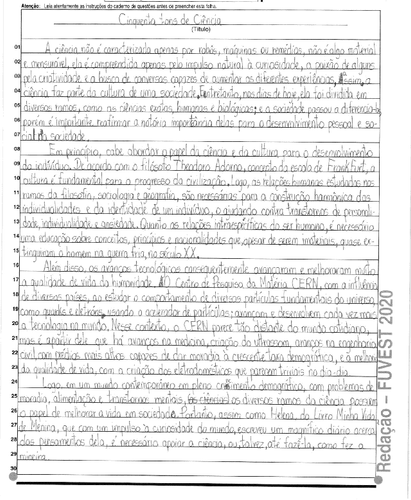 Atenção: Leia atentamente as instruções do caderno de questões antes de preencher esta folha.
Cinquenta tons de Ciência
(Título)
01 A ciência não é caracterizada apenas por robôs, máquinas ou remédios, não é algo material
02 e mensurável, ela é compreendida apenas pelo impulso natural à curiosidade, a paixão de alguns
03 pela criatividade e a busca de conversas capazes de aumentar as diferentes experiências. Assim, a
04 ciência faz parte da cultura de uma sociedade. Entretanto, nos dias de hoje, ela foi dividida em
05 diversos ramos, como as ciências exatas, humanas e biológicas; e a sociedade passou a diferenciá-las,
06 porém é importante reafirmar a notória importância delas para o desenvolvimento pessoal e so-
07 cial na sociedade.
08 Em princípio, cabe abordar o papel da ciência e da cultura para o desenvolvimento
09 do indivíduo. De acordo com o filósofo Theodoro Adorno, conceito da escola de Frankfurt, a
10 cultura é fundamental para o progresso da civilização. Logo, as relações humanas estudadas nos
11 ramos da filosofia, sociologia e geografia, são necessárias para a construção harmônica das
12 individualidades e da identidade de um indivíduo, o ajudando contra transtornos de personali-
13 dade, individualidade e ansiedade. Quanto as relações intraespecíficas do ser humano, é necessário
14 uma educação sobre conceitos, princípios e nacionalidades que apesar de serem imateriais, quase ex-
15 tinguiram o homem na guerra fria, no século XX.
16 Além disso, os avanços tecnológicos consequentemente avançaram e melhoraram muito
17 a qualidade de vida da humanidade. O Centro de Pesquisa da Matéria CERN, com a influência
18 de diversos países, ao estudar o comportamento de diversas partículas fundamentais do universo,
19 como quarks e elétrons, usando o acelerador de partículas; avançam e desenvolvem cada vez mais
20 a tecnologia no mundo. Nesse contexto, o CERN parece tão distante do mundo cotidiano,
21 mas é a partir dele que há avanços na medicina, criação da ultrassom, avanços na engenharia
22 civil, com prédios mais altos capazes de dar moradia à crescente taxa demográfica, e a melhora
23 da qualidade de vida, com a criação dos eletrodomésticos que parecem triviais no dia-dia.
24 Logo, em um mundo contemporâneo em pleno crescimento demográfico, com problemas de
25 moradia, alimentação e transtornos mentais, os diversos ramos da ciência possuem
26 o papel de melhorar a vida em sociedade. Portanto, assim como Helena, do Livro Minha Vida
27 de Menina, que com um impulso à curiosidade do mundo, escreveu um magnífico diário acerca
28 dos pensamentos dela, é necessário apoiar a ciência, ou talvez até fazê-la, como fez a
29 menina.
30
Redação – FUVEST 2020